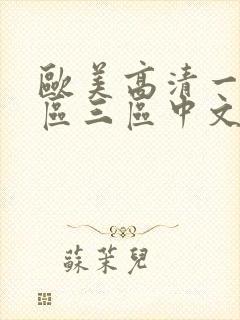 歐美高清一
區三區中文
蘇茉兒